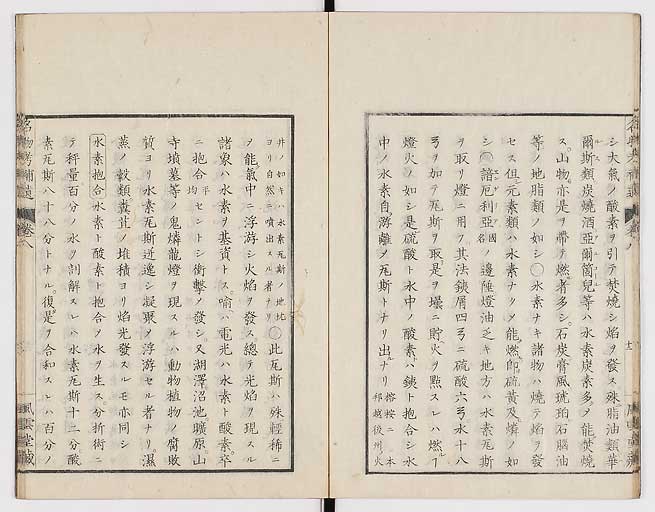 シ大氣ノ酸素ヲ引テ焚燒シ焰ヲ發ス殊脂油類華
爾斯類炭燒酒亞爾箇兒等ハ水素炭素多ク能焚燒
ス山物亦是ヲ帶テ燃者多シ石炭膏風琥珀石腦油
等ノ地脂類ノ如シ○水素ナキ諸物ハ燒テ焰ヲ發
セス但元素類ハ水素ナリメ能燃即硫黄及燐ノ如
シ○諳厄利亞國名ノ邊陲燈油乏キ地方ハ水素瓦斯
ヲ取リ燈ニ用フ其法鋏屑四弓ニ硫酸六弓水十八
弓ヲ加テ瓦斯ヲ取是ヲ壜ニ貯火ヲ點スレハ燃ー
燈火ノ如シ是硫酸ト水中ノ酸素ハ鋏ト抱合シ水
中ノ水素自游離メ瓦斯トナリ出ルナリ 榕按ニ本邦越後州ノ火
井ノ如キハ水素瓦斯ノ地坑ヨリ自然ニ噴出スル者ナリ○此瓦斯ハ殊輕稀ニ
ヲ能氣中ニ浮游シ火焰ヲ發ス總テ光焰ヲ現スル
諸象ハ水素ヲ基資トス喻ハ電光ハ水素ト酸素卒
ニ抱合平均セントシ衝擊メ發シ又湖澤沼池曠原山
寺墳墓等ノ鬼燐龍燈ヲ現スルハ動物植物ノ腐敗
質ヨリ水素瓦斯迸逸シ凝聚メ浮游セル者ナリ濕
蒸ノ穀類糞芘ノ堆積ヨリ焰光發スルモ亦同シ
水素抱合水素ト酸素ト抱合メ水ヲ生ス分析術ニ
テ秤量百分ノ水ヲ剖解スレハ水素瓦斯十二分酸
素瓦斯八十八分トナル復是ヲ合和スレハ百分ノ
名物考補遺 卷八
風雲堂藏